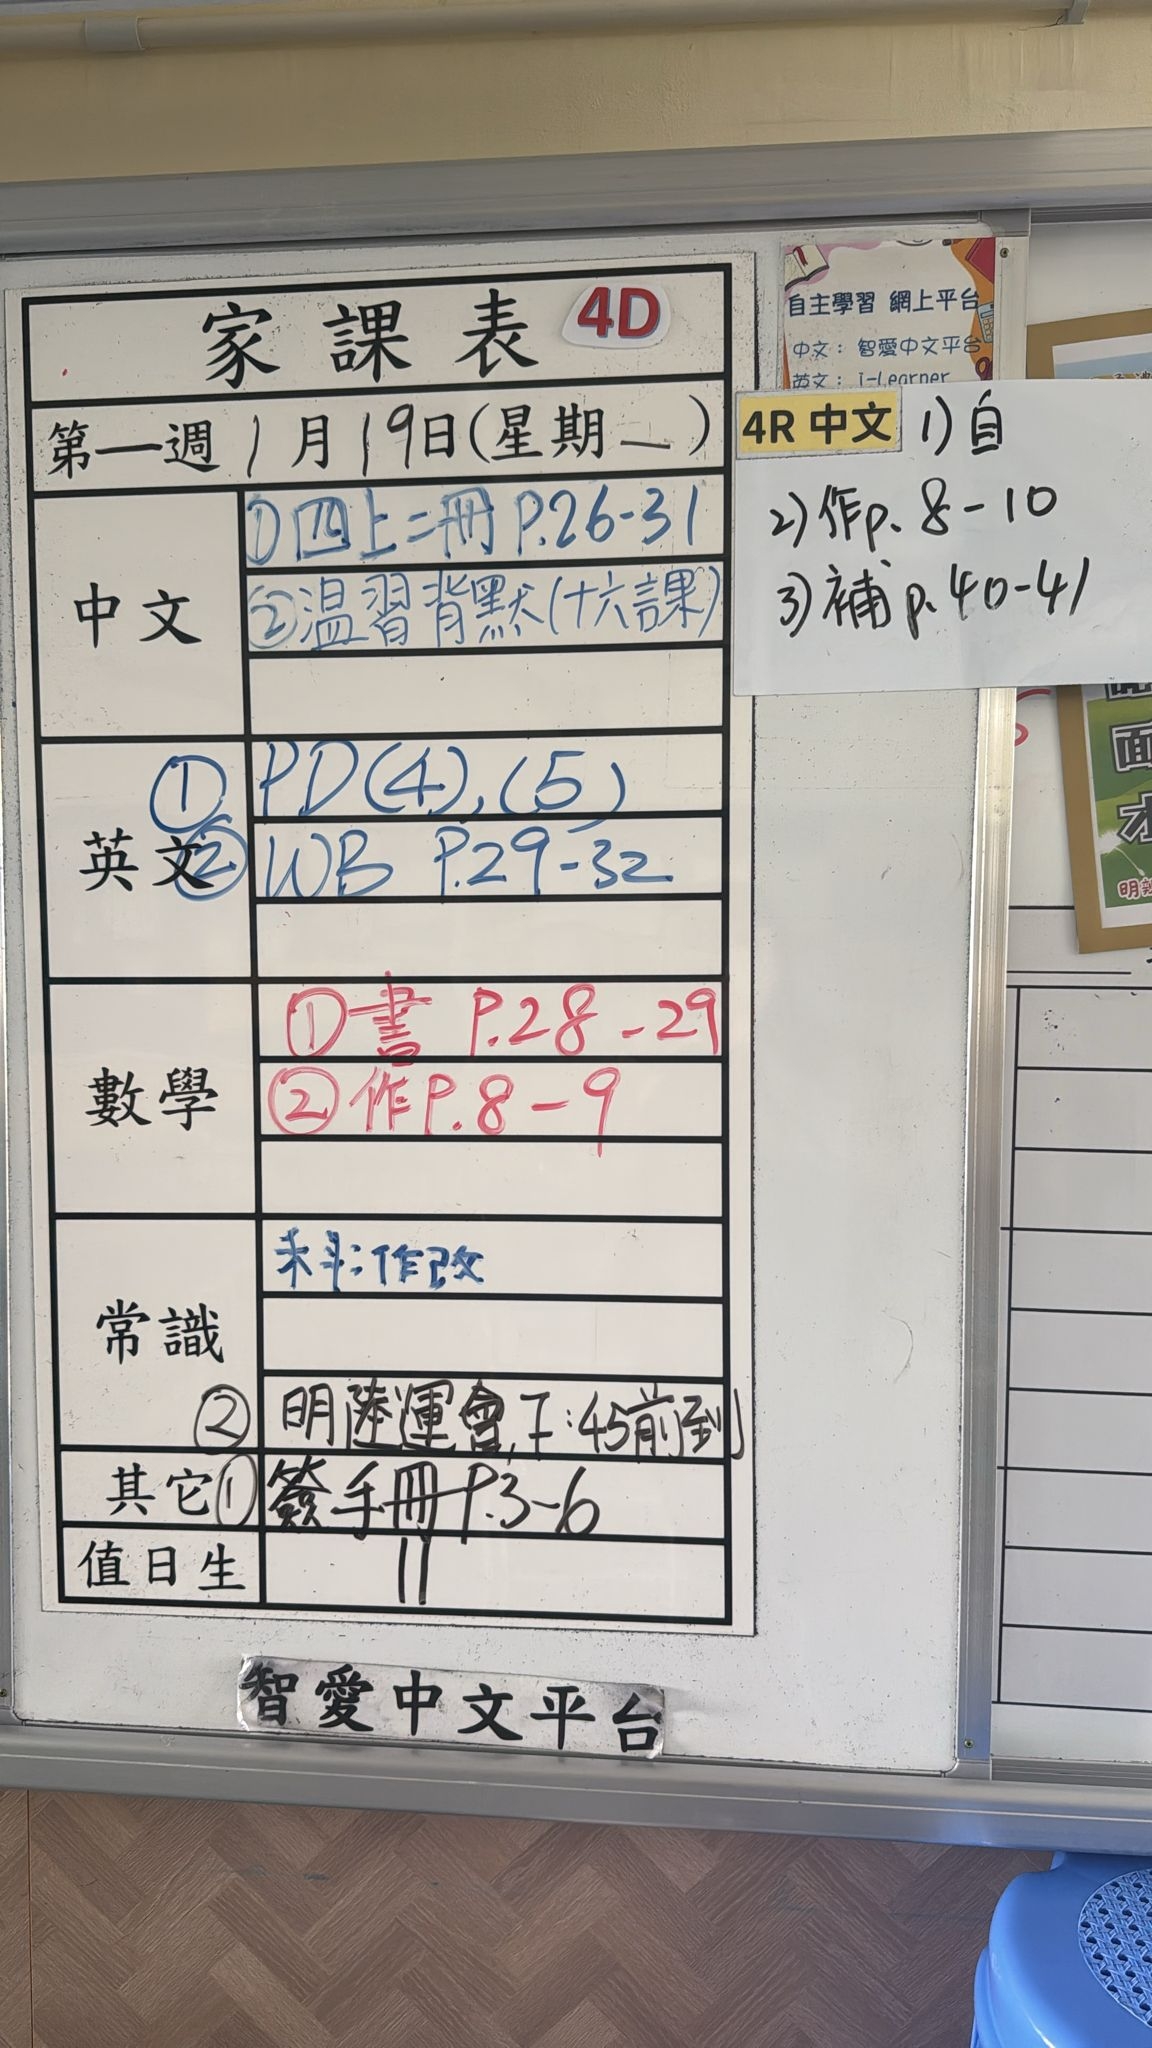 家課表 4D
第一週 1月19日(星期一)
中文
① 四上二冊 P.26-31
② 温習背默(十六課)
英文
① PD(4),(5)
② WB P.29-32
數學
① 書 P.28-29
② 作 P.8-9
常識
科:作改
② 明陸運會,7:45前到
其它
① 簽手冊 P.3-6
值日生
11
智愛中文平台
自主學習 網上平台
中文: 智愛中文平台
英文: i-Learner
4R 中文 1)自
2)作p. 8-10
3)補p.40-41
面
明